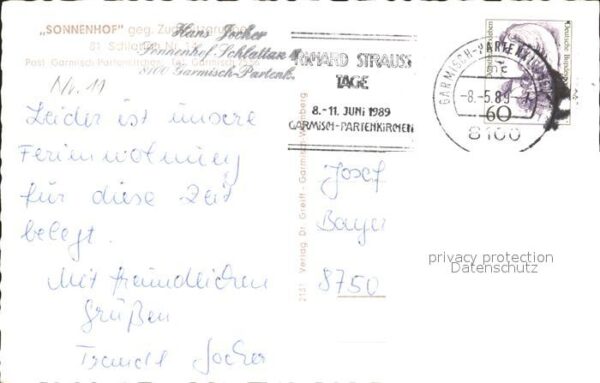 "SONNENHOF" geg. Zugspitzgruppe
81 Schlattan Nr. 11
Post Garmisch-Partenkirchen, Tel. Garmisch
Hans Jocher
Sonnenhof Schlattan
8100 Garmisch-Partenk.
Nr. 11
Leider ist unsere
Ferienwohnung
für diese Zeit
belegt.
Mit freundlichen
Grüßen
Traudl Jocher
2151 Verlag Dr. Greiff - Garmisch-Wamberg
RICHARD STRAUSS
TAGE
8.-11. JUNI 1989
GARMISCH-PARTENKIRCHEN
GARMISCH-PARTENKIRCHEN
mc
-8.-5.89
8100
Deutsche Bundespost
60
Josef
Bayer
8750
privacy protection
Datenschutz